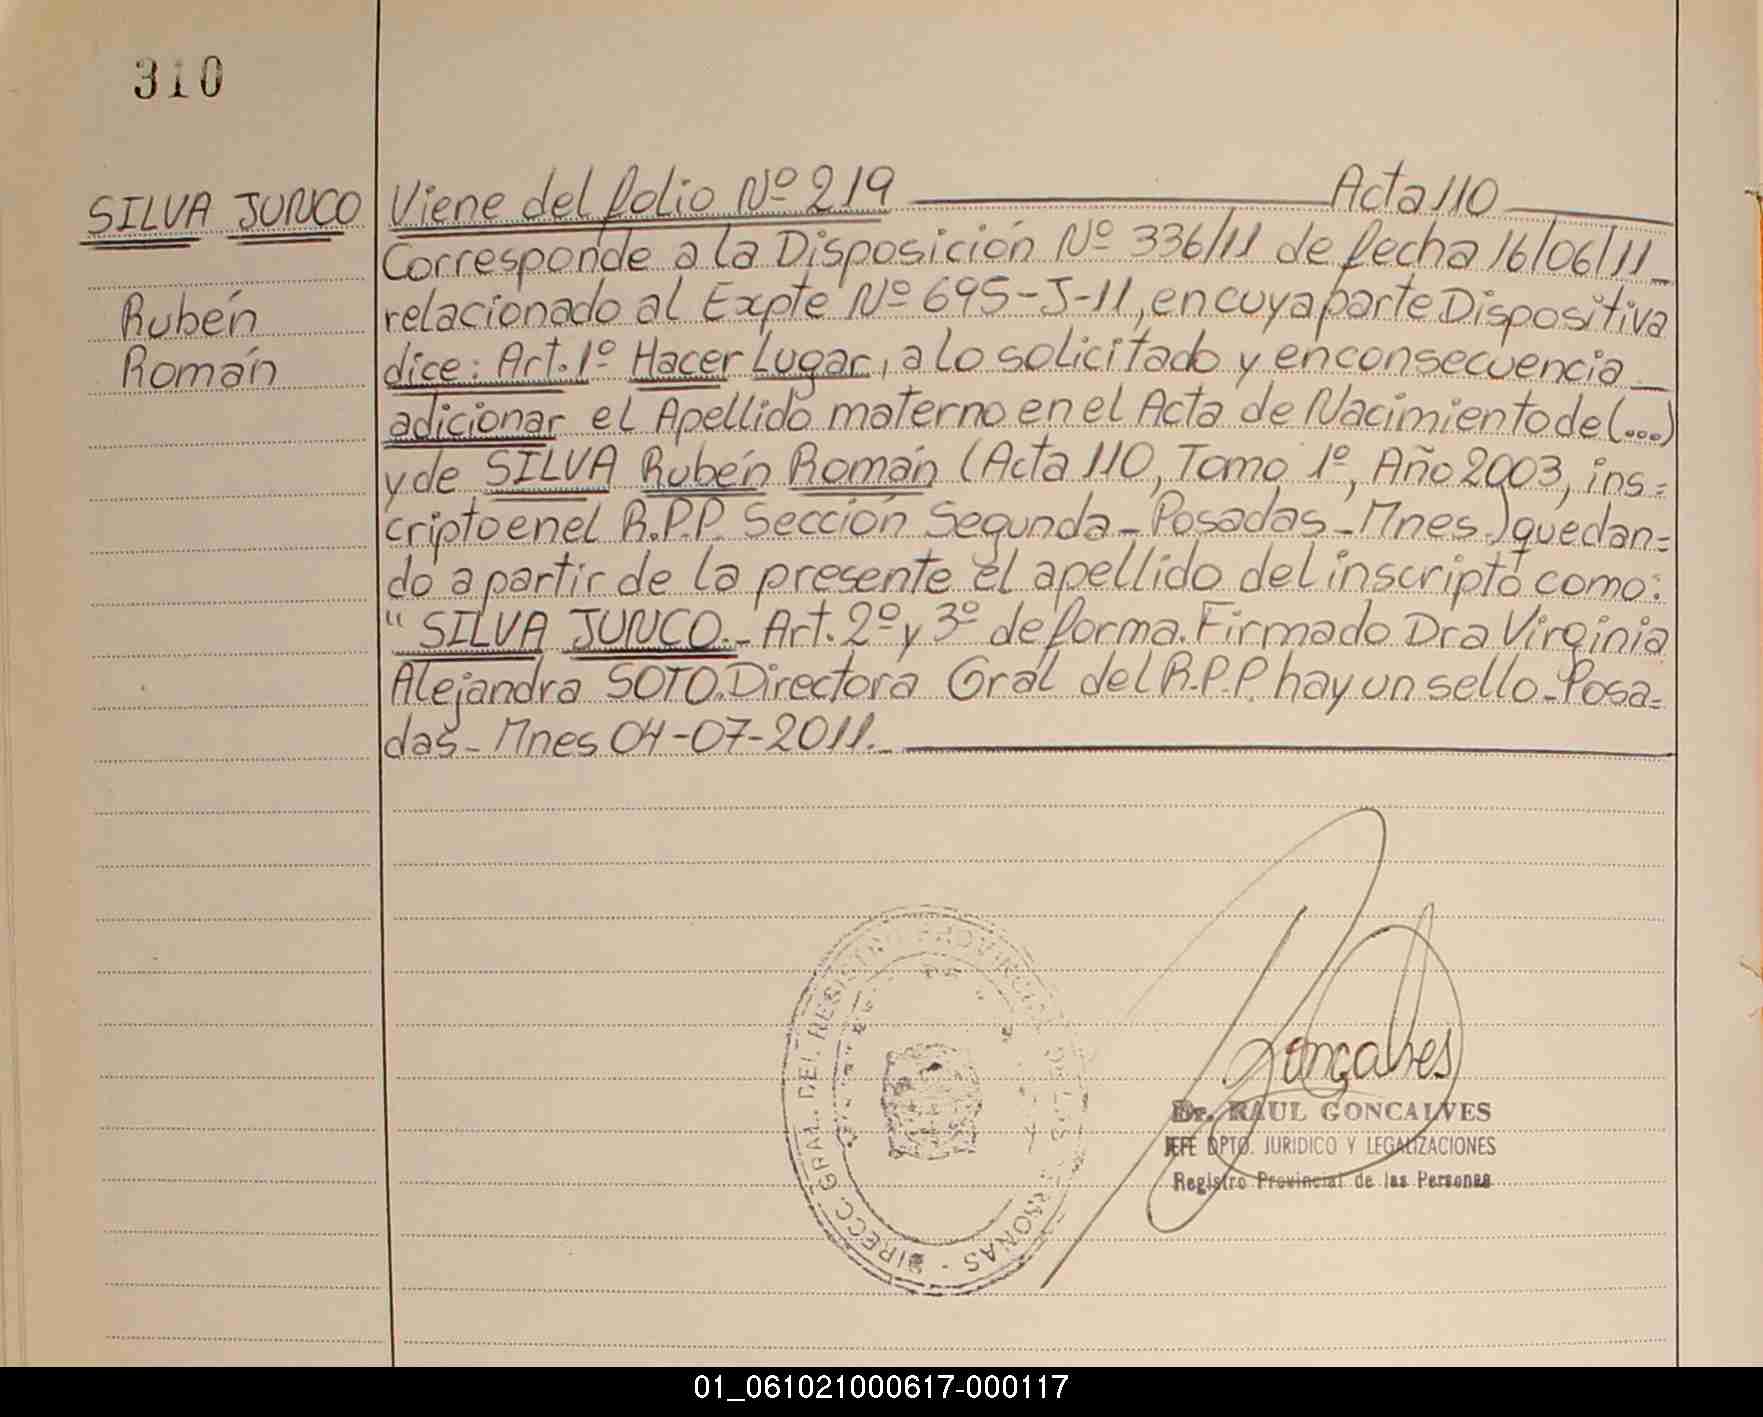 310
SILVA JUNCO
Rubén
Román
Viene del folio Nº 219 Acta 110
Corresponde a la Disposición Nº 336/11 de fecha 16/06/11_
relacionado al Expte Nº 695-J-11, en cuya parte Dispositiva
dice: Art. 1º Hacer Lugar, a lo solicitado y en consecuencia_
adicionar el Apellido materno en el Acta de Nacimiento de (...)
y de SILVA Rubén Román (Acta 110, Tomo 1º, Año 2003, ins=
cripto en el R.P.P. Sección Segunda_Posadas_Mnes.) quedan=
do a partir de la presente el apellido del inscripto como:
"SILVA JUNCO._ Art. 2º y 3º de forma. Firmado Dra Virginia
Alejandra SOTO. Directora Gral del R.P.P. hay un sello_Posa=
das_Mnes 04-07-2011._
DIRECC. GRAL. DEL REGISTRO PROVINCIAL DE LAS PERSONAS
Gonçalves
Dr. RAUL GONCALVES
JEFE DPTO. JURIDICO Y LEGALIZACIONES
Registro Provincial de las Personas
01_061021000617-000117